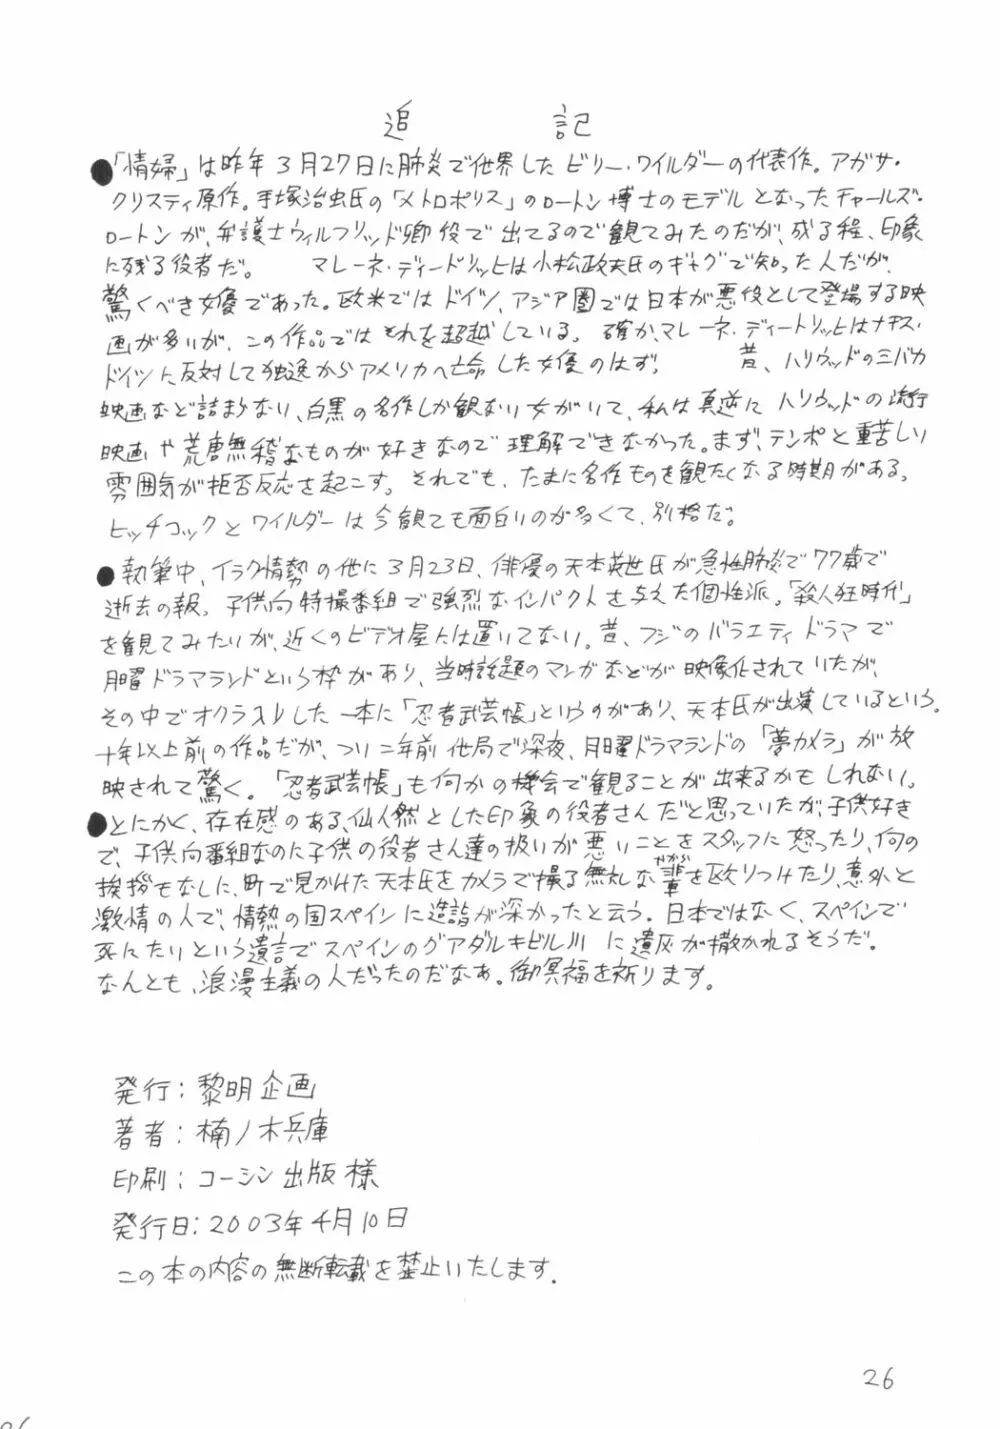 追記
●「情婦」は昨年3月27日に肺炎で他界したビリー・ワイルダーの代表作。アガサ・
クリスティ原作。手塚治虫氏の「メトロポリス」のロートン博士のモデルとなったチャールズ・
ロートンが、弁護士ウィルフリッド卿役で出てるので観てみたのだが、成る程、印象
に残る役者だ。 マレーネ・ディードリッヒは小松政夫氏のギャグで知った人だが、
驚くべき女優であった。欧米ではドイツ、アジア圏では日本が悪役として登場する映
画が多いが、この作品ではそれを超越している。 確か、マレーネ・ディートリッヒはナチス・
ドイツに反対して独逸からアメリカへ亡命した女優のはず。 昔、ハリウッドのミバカ
映画など詰まらない、白黒の名作しか観ない女がいて、私は真逆にハリウッドの流行
映画や荒唐無稽なものが好きなので理解できなかった。まず、テンポと重苦しい
雰囲気が拒否反応を起こす。それでも、たまに名作ものを観たくなる時期がある。
ヒッチコックとワイルダーは今観ても面白いのが多くて、別格だ。
●執筆中、イラク情勢の他に3月23日、俳優の天本英世氏が急性肺炎で77歳で
逝去の報。子供向特撮番組で強烈なインパクトを与えた個性派。「殺人狂時代」
を観てみたいが、近くのビデオ屋には置いてない。昔、フジのバラエティドラマで
月曜ドラマランドという枠があり、当時話題のマンガなどが映像化されていたが、
その中でオクラ入りした一本に「忍者武芸帳」というのがあり、天本氏が出演しているという。
十年以上前の作品だが、つい二年前他局で深夜、月曜ドラマランドの「夢カメラ」が放
映されて驚く。「忍者武芸帳」も何かの機会で観ることが出来るかもしれない。
●とにかく、存在感のある、仙人然とした印象の役者さんだと思っていたが、子供好き
で、子供向番組なのに子供の役者さん達の扱いが悪いことをスタッフに怒ったり、何の
挨拶もなしに、町で見かけた天本氏をカメラで撮る無礼な輩を殴りつけたり、意外と
激情の人で、情熱の国スペインに造詣が深かったと云う。日本ではなく、スペインで
死にたいという遺言でスペインのグアダルキビル川に遺灰が撒かれるそうだ。
なんとも、浪漫主義の人だったのだなぁ。御冥福を祈ります。
発行:黎明企画
著者:楠ノ木兵庫
印刷:コーシン出版様
発行日:2003年4月10日
この本の内容の無断転載を禁止いたします.
26